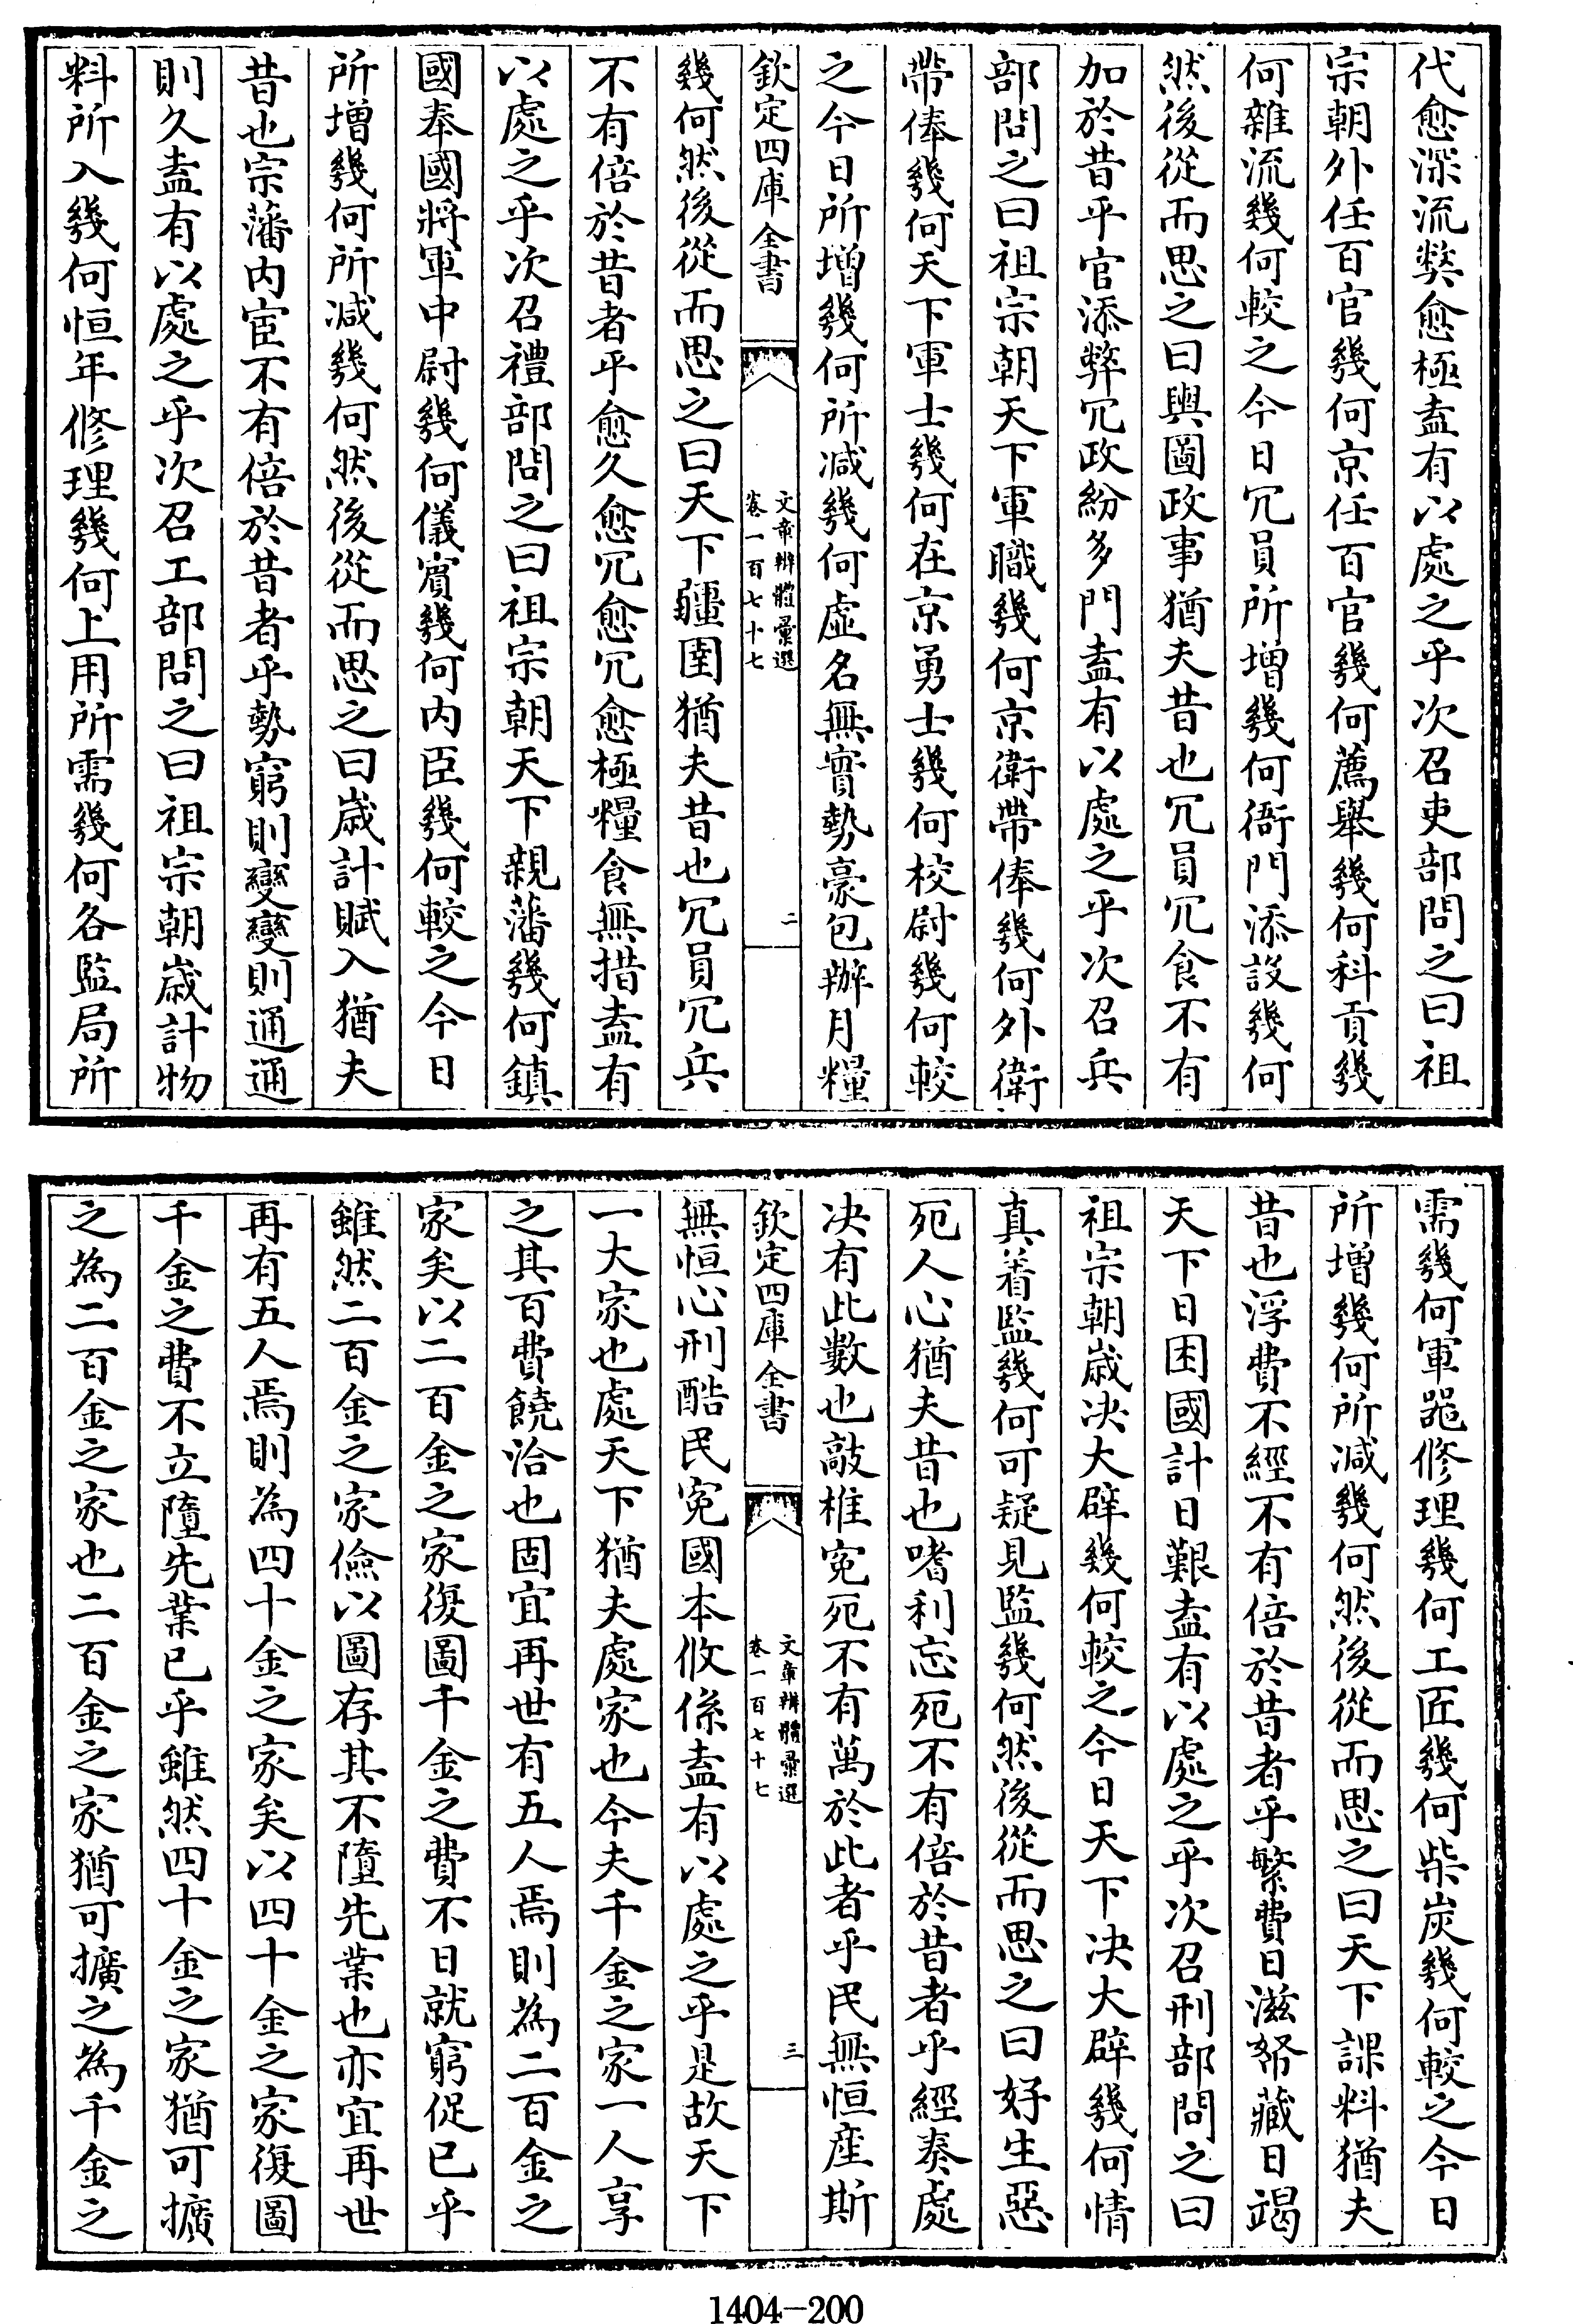 代愈深流獘愈極盍有以處之乎次召吏部問之曰祖
宗朝外任百官幾何京任百官幾何薦舉幾何科貢幾
何雜流幾何較之今日冗員所增幾何衙門添設幾何
然後從而思之曰輿圖政事猶夫昔也冗員冗食不有
加於昔乎官添弊冗政紛多門盍有以處之乎次召兵
部問之曰祖宗朝天下軍職幾何京衛帶俸幾何外衛
帶俸幾何天下軍士幾何在京勇士幾何校尉幾何較
之今日所增幾何所减幾何虚名無實勢豪包辦月糧
欽定四庫全書
文章辨體彙選
卷一百七十七
二
幾何然後從而思之曰天下疆圉猶夫昔也冗員冗兵
不有倍於昔者乎愈久愈冗愈冗愈極糧食無措盍有
以處之乎次召禮部問之曰祖宗朝天下親藩幾何鎮
國奉國將軍中尉幾何儀賓幾何内臣幾何較之今日
所增幾何所减幾何然後從而思之曰歳計賦入猶夫
昔也宗藩内宦不有倍於昔者乎勢窮則變變則通通
則久盍有以處之乎次召工部問之曰祖宗朝歳計物
料所入幾何恒年修理幾何上用所需幾何各監局所
需幾何軍器修理幾何工匠幾何柴炭幾何較之今日
所增幾何所减幾何然後從而思之曰天下課料猶夫
昔也浮費不經不有倍於昔者乎繁費日滋帑藏日竭
天下日困國計日艱盍有以處之乎次召刑部問之曰
祖宗朝歳决大辟幾何較之今日天下决大辟幾何情
真着監幾何可疑見監幾何然後從而思之曰好生惡
死人心猶夫昔也嗜利忘死不有倍於昔者乎經奏處
决有此數也敲椎寃死不有萬於此者乎民無恒産斯
欽定四庫全書
文章辨體彙選
卷一百七十七
三
無恒心刑酷民寃國本攸係盍有以處之乎是故天下
一大家也處天下猶夫處家也今夫千金之家一人享
之其百費饒洽也固宜再世有五人焉則為二百金之
家矣以二百金之家復圖千金之費不日就窮促已乎
雖然二百金之家儉以圖存其不墮先業也亦宜再世
再有五人焉則為四十金之家矣以四十金之家復圖
千金之費不立墮先業已乎雖然四十金之家猶可擴
之為二百金之家也二百金之家猶可擴之為千金之
1404-200